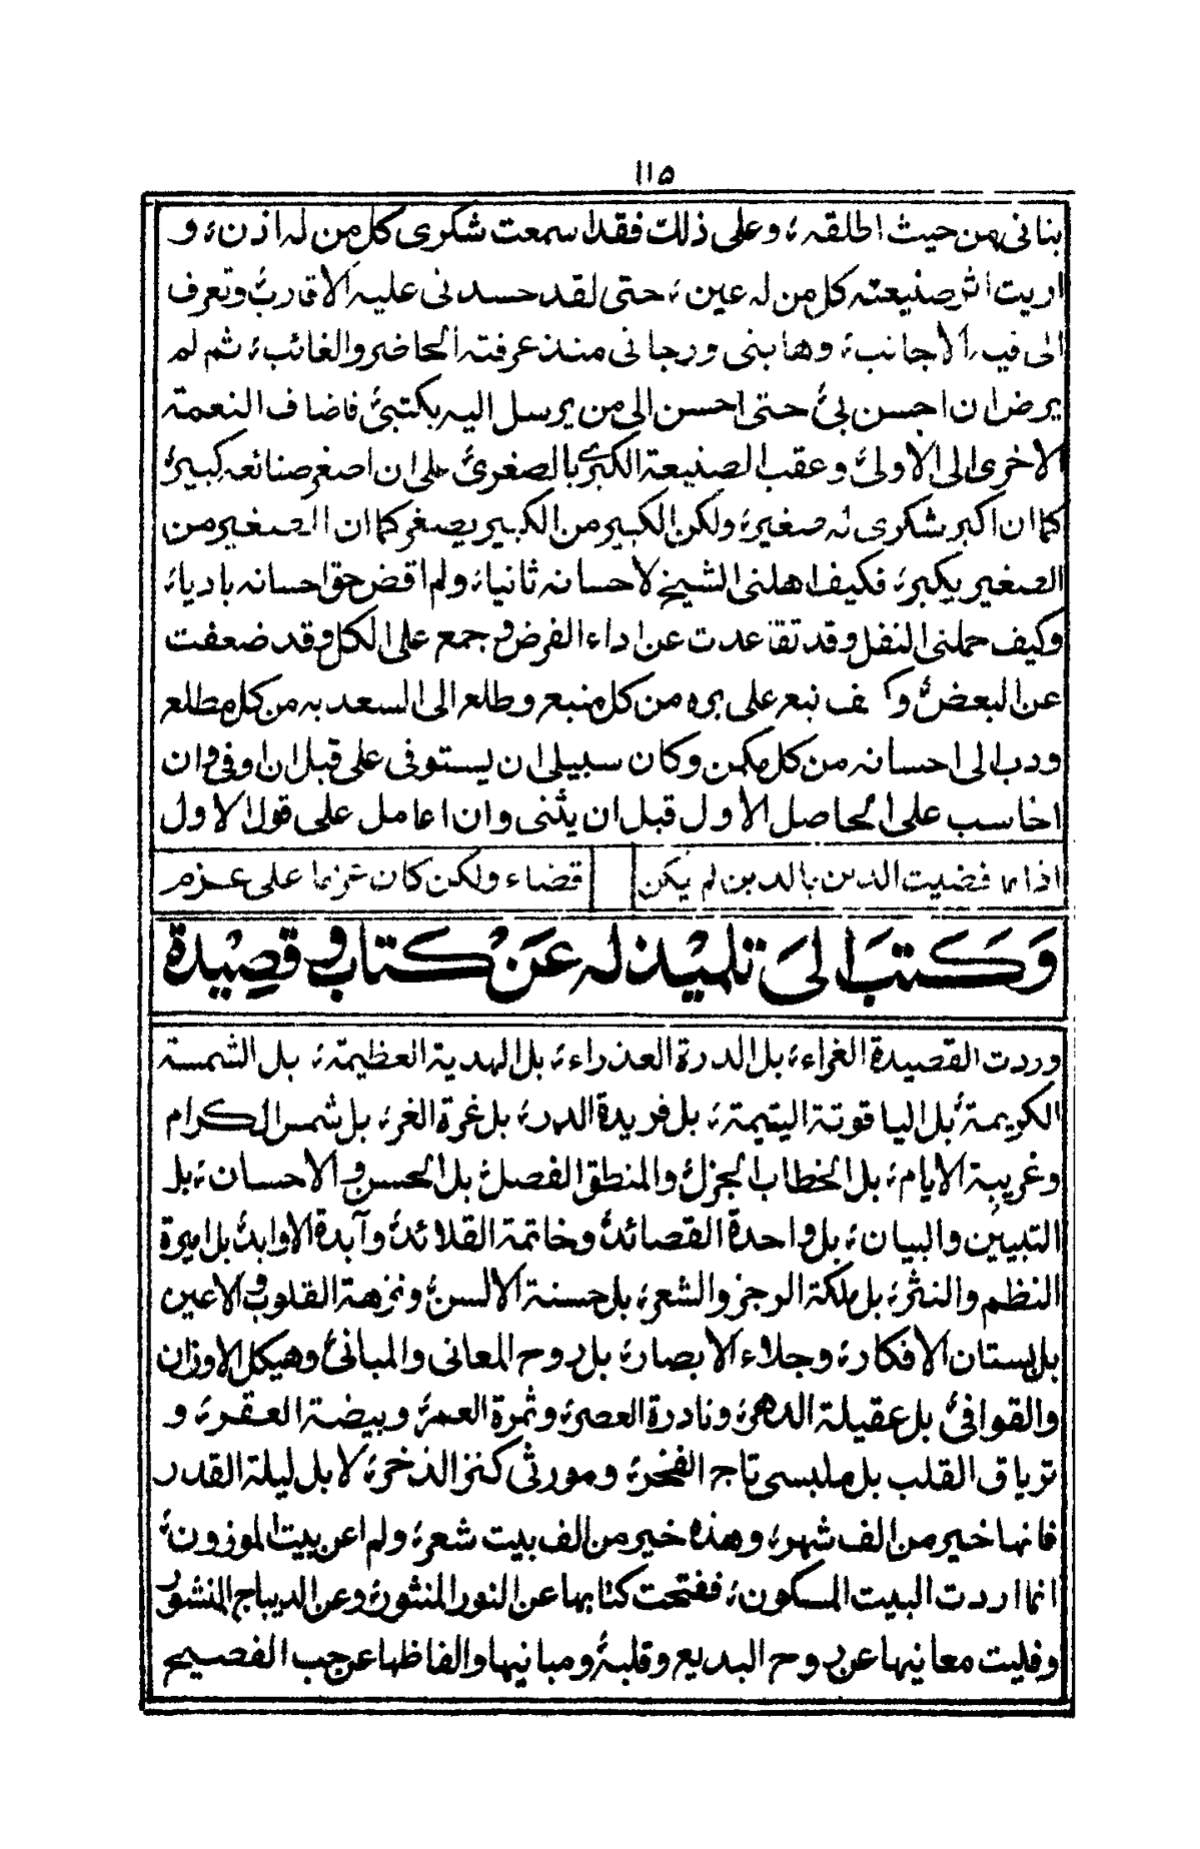 ١١٥
بنانى من حيث اطلقه، وعلى ذلك فقد اسمعت شكرى كل من له اذن، و
اريت اثر صنيعته كل من له عين، حتى لقد حسدنى عليه الاقارب، وتعرف
الى فيه الاجانب، وهابنى ورجانى منذ عرفته الحاضر والغائب، ثم لم
يرض ان احسن بى، حتى احسن الى من يرسل اليه بكتبى، فاضاف النعمة
الاخرى الى الاولى، وعقب الصنيعة الكبرى بالصغرى، على ان اصغر صنائعه كبيرة
كما ان اكبر شكرى له صغير، ولكن الكبير من الكبير يصغر كما ان الصغير من
الصغير يكبر، فكيف اهلنى الشيخ لاحسانه ثانيا، ولم اقض حق احسانه باديا،
وكيف حملنى النفل وقد تقاعدت عن اداء الفرض و جمع على الكل وقد ضعفت
عن البعض، وكيف نبع على بره من كل منبع وطلع الى السعد به من كل مطلع
ودب الى احسانه من كل مكمن وكان سبيلى ان يستوفى على قبل ان اوفى و ان
احاسب على الحاصل الاول قبل ان يثنى وان اعامل على قول الاول
اذا ما قضيت الدين بالدين لم يكن قضاء ولكن كان غرما على غرم
وَكَتبَ الىَ تلميذ له عَنْ كتاب و قصِيْدة
وردت القصيدة الغراء، بل الدرة العذراء، بل الهدية العظيمة، بل الشمسة
الكريمة، بل الياقوتة اليتيمة، بل فريدة الدرر، بل غرة الغرر، بل شمس الكرام
وغريبة الايام، بل الخطاب الجزل، والمنطق الفصل، بل الحسن و الاحسان، بل
التبيين والبيان، بل واحدة القصائد، وخاتمة القلائد، وآبدة الاوابد، بل اميرة
النظم والنثر، بل ملكة الرجز والشعر، بل حسنة الالسن، ونزهة القلوب و الاعين
بل بستان الافكار، وجلاء الابصار، بل روح المعانى والمبانى، وهيكل الاوزان
والقوافى، بل عقيلة الدهر، ونادرة العصر، وثمرة العمر، وبيضة العقر، و
ترياق القلب بل ملبسى تاج الفخر، ومورثى كنز الذخر، لا بل ليلة القدر
فانها خير من الف شهر، وهذه خير من الف بيت شعر، ولم اعن بيت الموزون،
انما اردت البيت المسكون، ففتحت كتابها عن النور المنثور، وعن الديباج المنشور
وفليت معانيها عن روح البديع وقلبه، ومبانيها والفاظها عن جب الفصيح